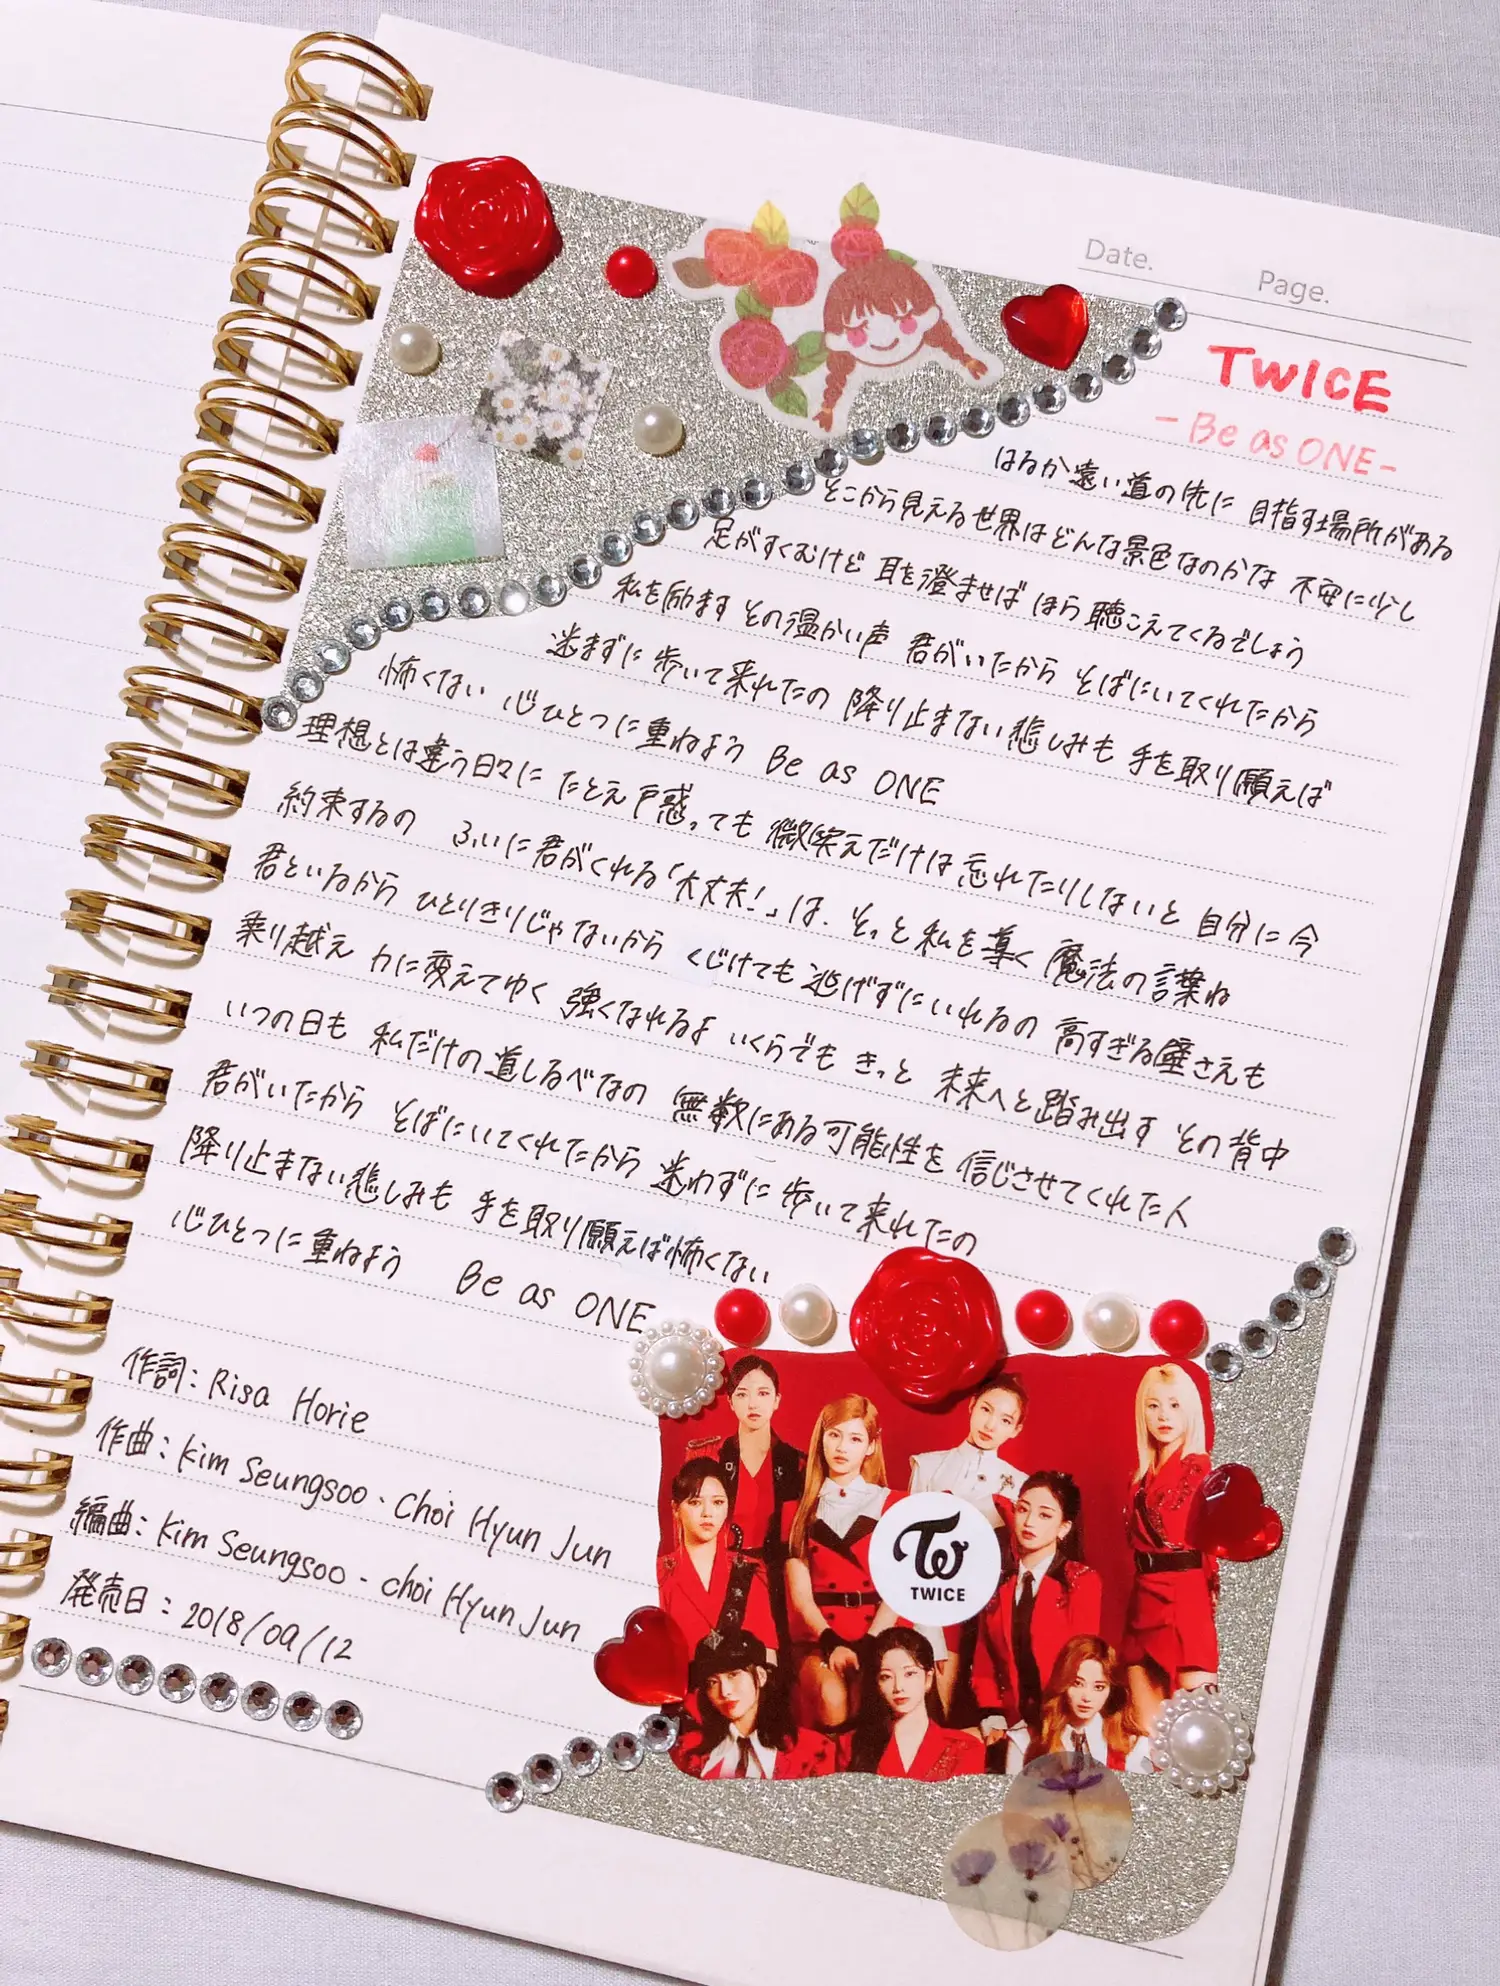 Date.
Page.
TWICE
- Be as ONE -
はるか遠い道の先に 目指す場所がある
そこから見える世界はどんな景色なのかな 不安に少し
足がすくむけど 耳を澄ませば ほら 聴こえてくるでしょう
私を励ます その温かい声 君がいたから そばにいてくれたから
迷まずに 歩いて来れたの 降り止まない悲しみも 手を取り願えば
怖くない 心ひとつに重ねよう Be as ONE
理想とは違う日々に たとえ戸惑っても 微笑えだけは忘れたりしないと 自分に今
約束するの ふいに君がくれる「大丈夫!」は、そっと私を導く 魔法の言葉ね
君といるから ひとりきりじゃないから くじけても 逃げずにいれるの 高すぎる壁さえも
乗り越え 力に変えてゆく 強くなれるよ いくらでも きっと 未来へと踏み出す その背中
いつの日も 私だけの道しるべなの 無数にある可能性を 信じさせてくれた人
君がいたから そばにいてくれたから 迷わずに 歩いて来れたの
降り止まない悲しみも 手を取り願えば怖くない
心ひとつに重ねよう Be as ONE
作詞: Risa Horie
作曲: Kim Seungsoo・Choi Hyun Jun
編曲: Kim Seungsoo・choi Hyun Jun
発売日: 2018/09/12
TWICE